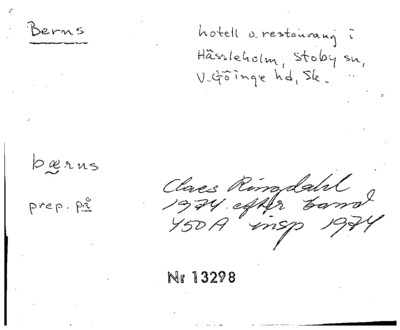 Berns
hotell o. restaurang i
Hässleholm, Stoby sn,
V. Göinge hd, Sk.
bærns
prep. på
Claes Ringdahl
1974 efter band
450A insp 1974
Nr 13298